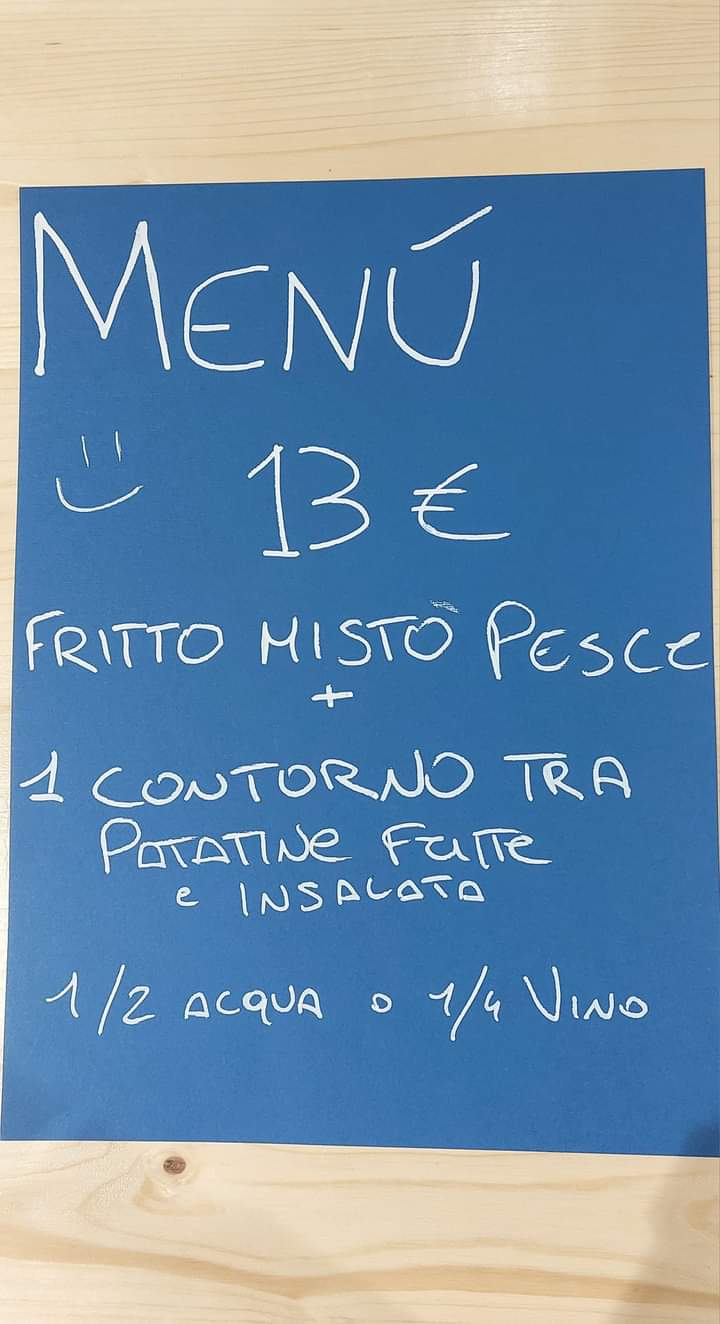 MENÚ
13 €
FRITTO MISTO PESCE
+
1 CONTORNO TRA
PATATINE FRITTE
e INSALATA
1/2 ACQUA o 1/4 VINO